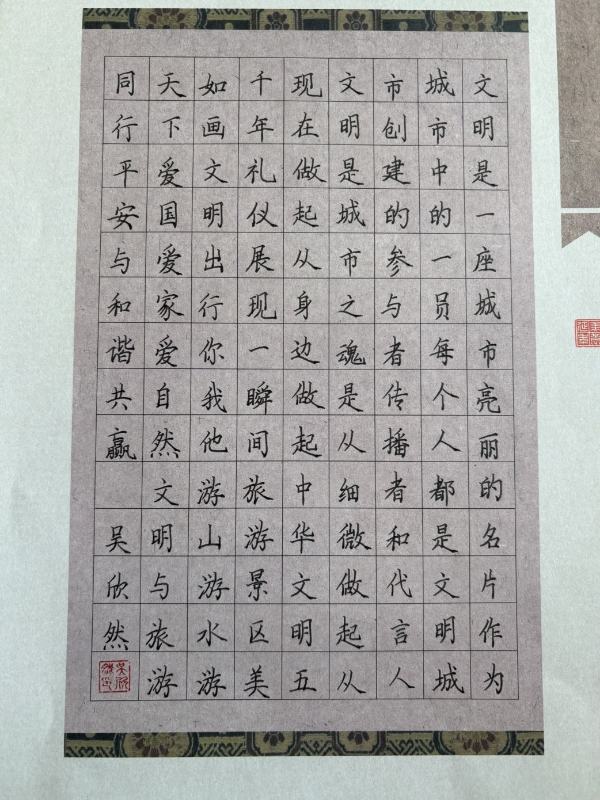 文明是一座城市亮丽的名片作为
城市中的一员每个人都是文明城
市创建的参与者传播者和代言人
文明是城市之魂是从细微做起从
现在做起从身边做起中华文明五
千年礼仪展现一瞬间旅游景区美
如画文明出行你我他游山游水游
天下爱国爱家爱自然文明与旅游
同行平安与和谐共赢 吴欣然